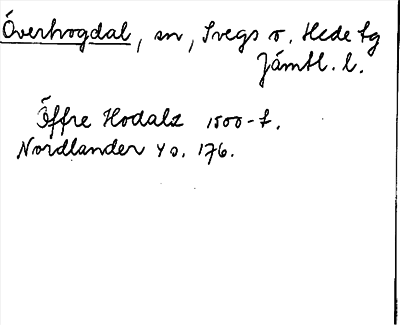 Överhogdal, sn, Svegs o. Hede tg
Jämtl. l.
Öffre Hodalz 1500-t.
Nordlander YO. 176.